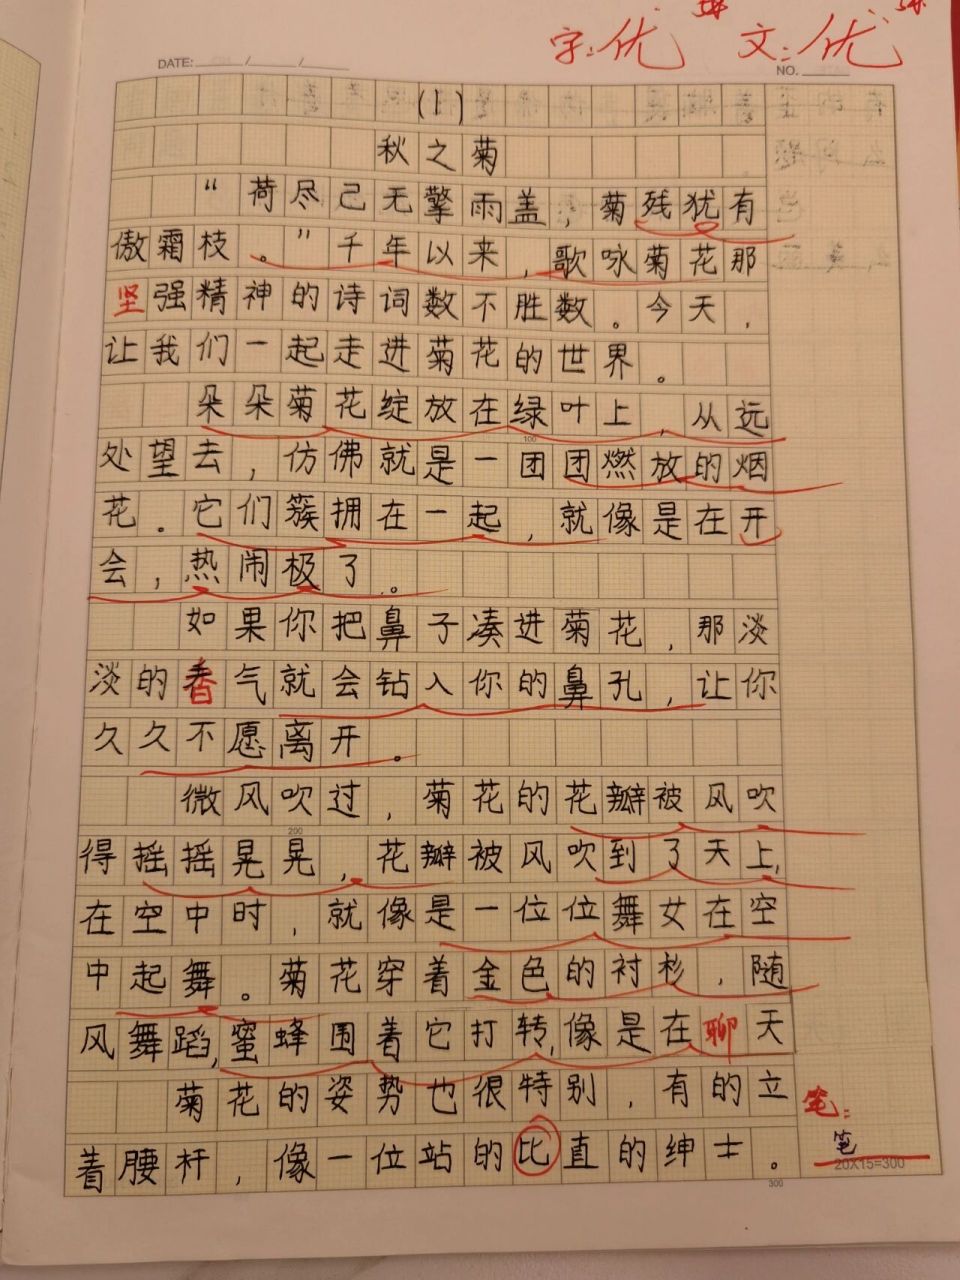 字:优 文:优
DATE: / /
NO.
(1)
秋之菊
“荷尽己无擎雨盖，菊残犹有
傲霜枝。”千年以来，歌咏菊花那
坚强精神的诗词数不胜数。今天，
让我们一起走进菊花的世界。
朵朵菊花绽放在绿叶上，从远
100
处望去，仿佛就是一团团燃放的烟
花。它们簇拥在一起，就像是在开
会，热闹极了。
如果你把鼻子凑进菊花，那淡
淡的香气就会钻入你的鼻孔，让你
久久不愿离开。
微风吹过，菊花的花瓣被风吹
200
得摇摇晃晃，花瓣被风吹到了天上，
在空中时，就像是一位位舞女在空
中起舞。菊花穿着金色的衬衫，随
风舞蹈，蜜蜂围着它打转，像是在聊天
菊花的姿势也很特别，有的立
笔：
着腰杆，像一位站的比直的绅士。
笔
20X15=300
300